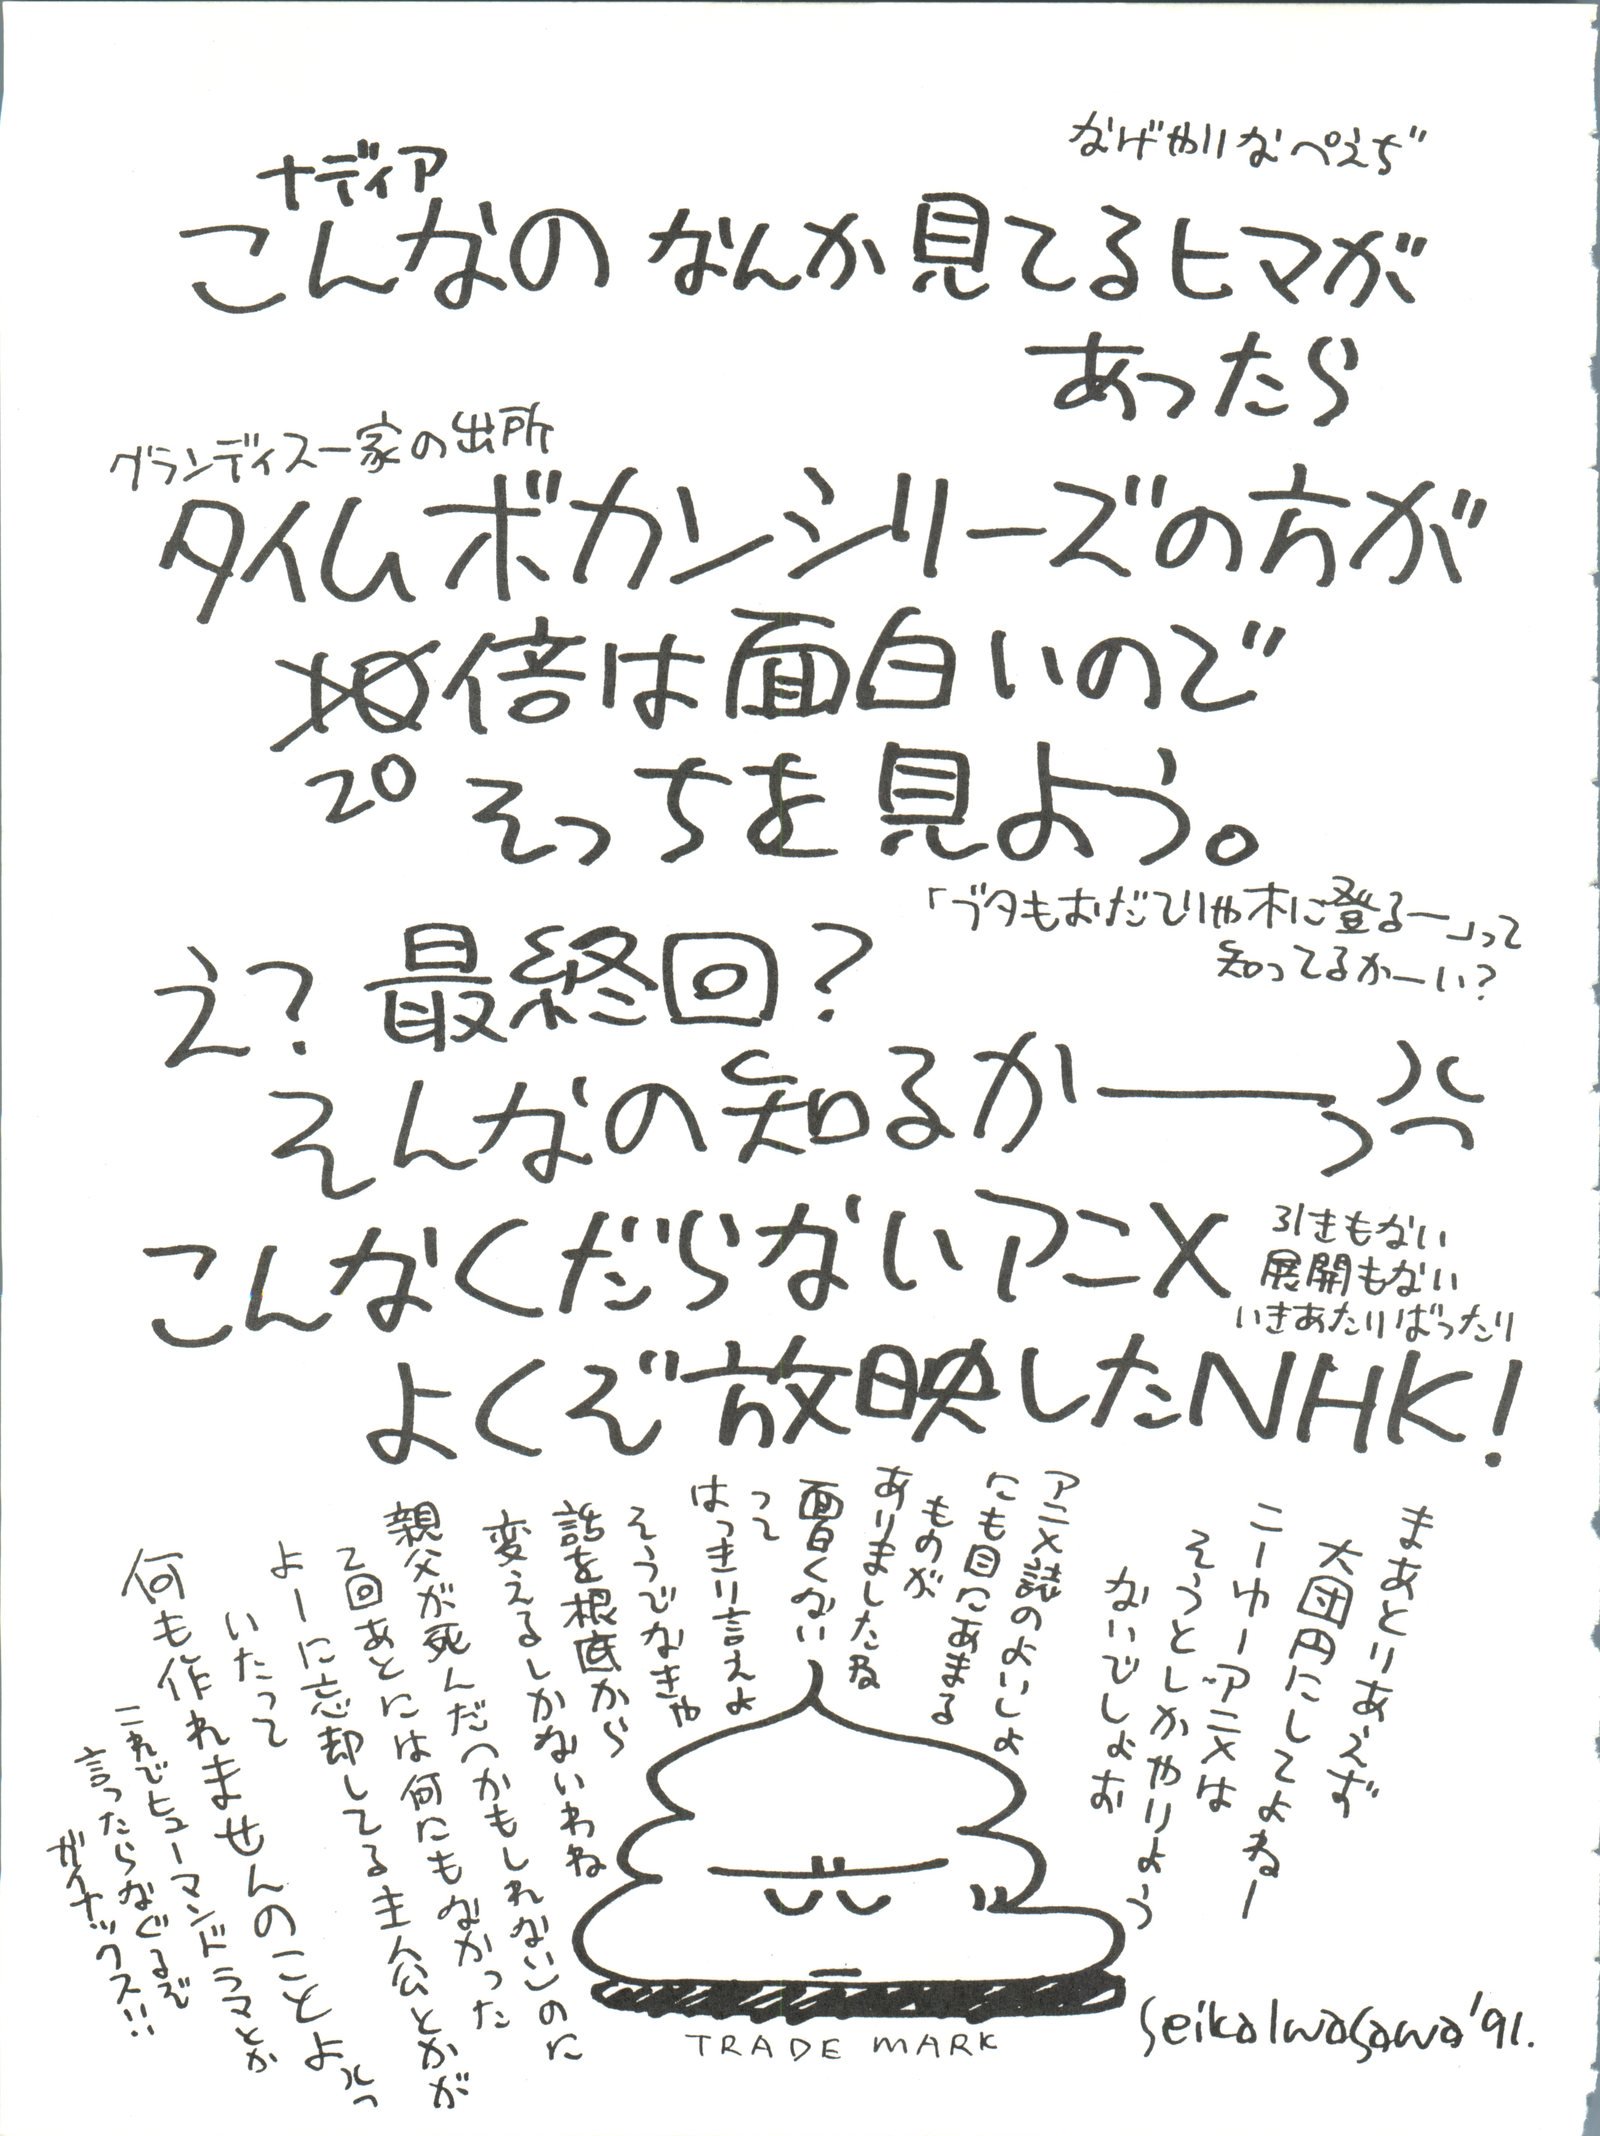 なげやりなぺえぢ
ナディア
こんなの なんか見てるヒマが
あったら
グランディス一家の出所
タイムボカンシリーズの方が
10倍は面白いので
20 そっちを見よう。
「ブタもおだてりゃ木に登るー」って
知ってるかーい?
え?最終回?
そんなの知るかーーっ
こんなくだらないアニメ
引きもない
展開もない
いきあたりばったり
よくぞ放映したNHK!
まあとりあえず
大団円にしてよねー
こーゆーアニメは
そうとしかやりよう
ないでしょお
アニメ誌のよいしょ
にも目にあまる
ものが
ありましたね
面白くない
って
はっきり言えよ
そうでなきゃ
話を根底から
変えるしかないわね
親父が死んだ(かもしれない)のに
2回あとには何にもなかった
よーに忘却してる主人公とかが
いたって
何も作れませんのことよっ
これでヒューマンドラマとか
言ったらなぐるぞ
ガイナックス!!
TRADE MARK
Seika Iwasawa '91.